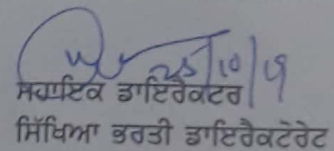 25/10/19
ਸਹਾਇਕ ਡਾਇਰੈਕਟਰ
ਸਿੱਖਿਆ ਭਰਤੀ ਡਾਇਰੈਕਟੋਰੇਟ